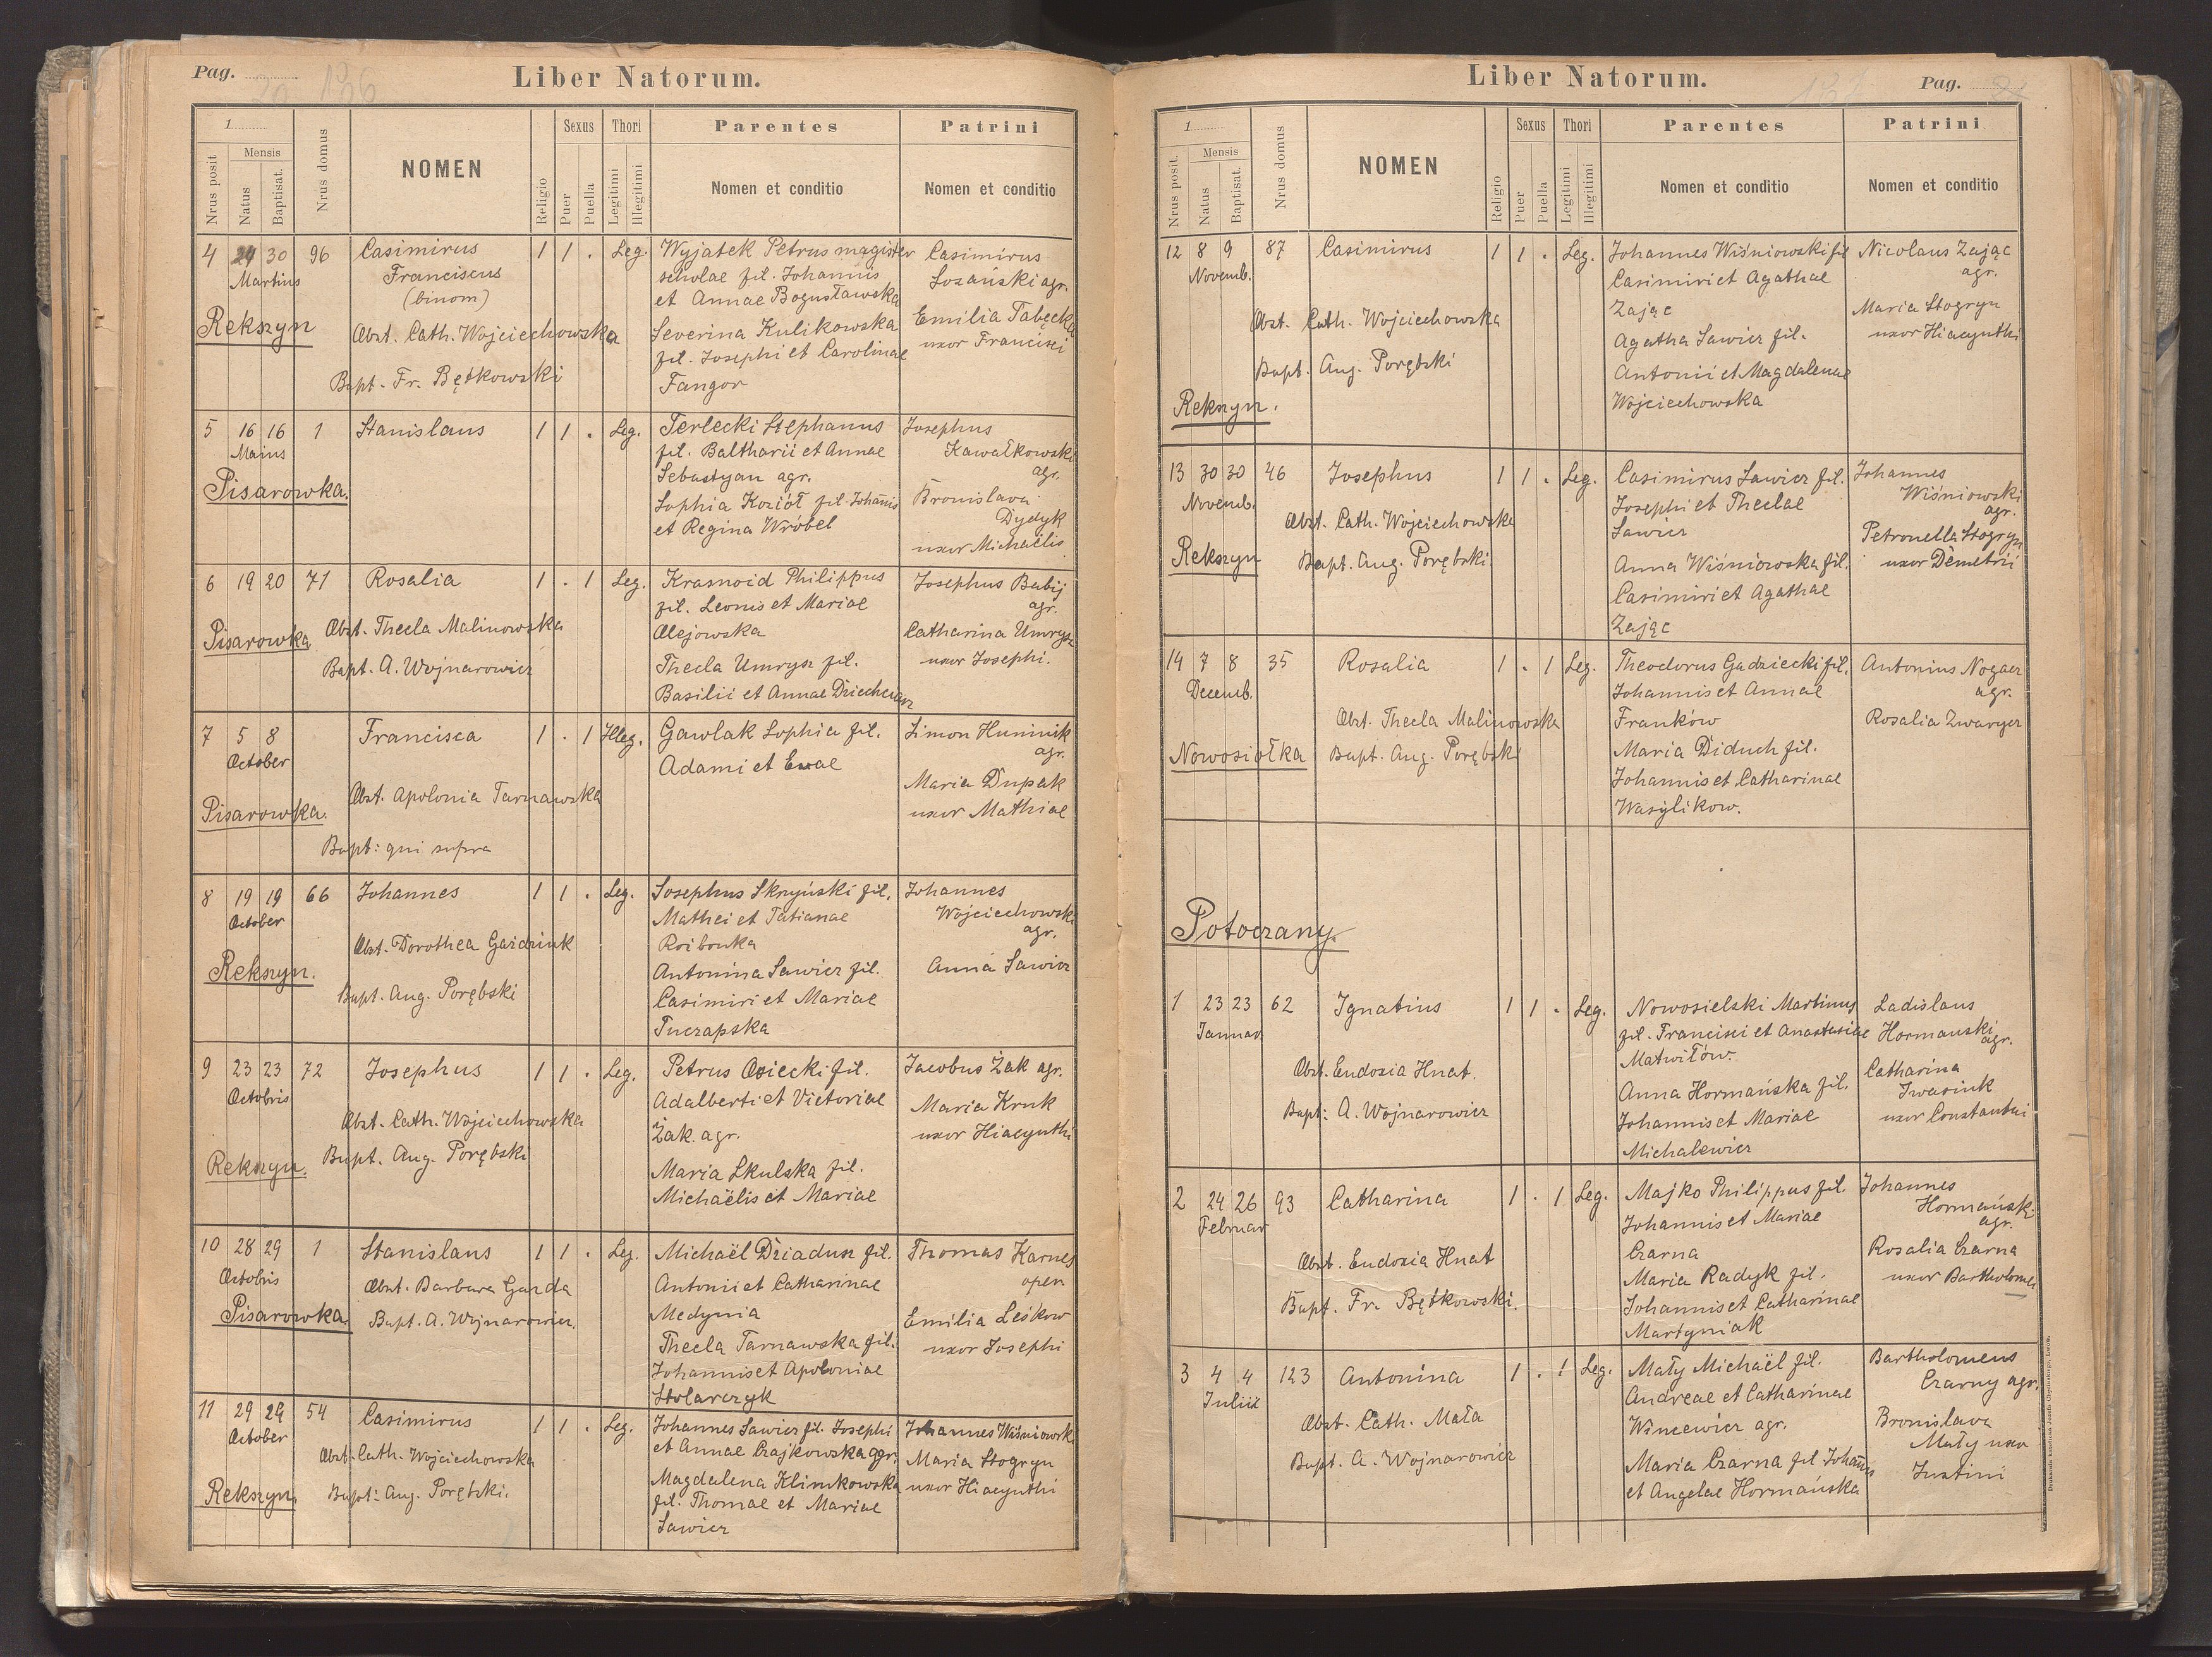 Pag. 136
Liber Natorum.
1
Nrus posit
Mensis
Natus
Baptisat.
Nrus domus
NOMEN
Religio
Sexus
Puer
Puella
Thori
Legitimi
Illegitimi
Parentes
Nomen et conditio
Patrini
Nomen et conditio
4 24 30 96 Casimirus 1 1 . Leg. Wyjatek Petrus magister Casimirus
Martius Franciscus scholae fil. Johannis Łosański agr.
(binom) et Annae Bogusławska
Rekszyn Obst. Cath. Wojciechowska Severina Kulikowska Emilia Tabęcka
fil. Josephi et Carolinae uxor Francisci
Bapt. Fr. Bętkowski Fangor
5 16 16 1 Stanislaus 1 1 . Leg. Terlecki Stephanus Josephus
Maius fil. Baltharii et Annae Kawałkowski
Pisarowka. Sebastyan agr. agr.
Sophia Kozioł fil. Johannis Bronislava
et Regina Wróbel Dydyk
uxor Michaëlis
6 19 20 71 Rosalia 1 . 1 Leg. Krasnoid Philippus Josephus Babij
fil. Leonis et Mariae agr.
Pisarowka Obst. Thecla Malinowska Olejowska Catharina Umrysz
Bapt. A. Wojnarowicz Thecla Umrysz fil. uxor Josephi.
Basilii et Annae
7 5 8 Francisca 1 . 1 Illeg. Gawlak Sophia fil. Simon Huminik
October Adami et Evae agr.
Obst. Apolonia Tarnawska Maria Dupak
Pisarowka. uxor Mathiae
Bapt: qui supra
8 19 19 66 Johannes 1 1 . Leg. Josephus Skrzyński fil. Johannes
October Mathei et Tatianae Wojciechowski
Obst. Dorothea Gaidziuk Roibonka agr.
Rekszyn. Antonina Sawicz fil. Anna Sawicz
Bapt. Aug. Porębski Casimiri et Mariae
Tuczapska
9 23 23 72 Josephus 1 1 . Leg. Petrus Osiecki fil. Jacobus Żak agr.
Octobris Adalberti et Victoriae Maria Kruk
Obst. Cath. Wojciechowska Żak. agr. uxor Hiacynthi
Rekszyn. Bapt. Aug. Porębski Maria Skulska fil.
Michaëlis et Mariae
10 28 29 1 Stanislaus 1 1 . Leg. Michaël Dziadusz fil. Thomas Karnes
Octobris Obst. Barbara Garda Antonii et Catharinae oper
Pisarowka Bapt. A. Wojnarowicz. Medynia Emilia Leśkow
Thecla Tarnawska fil. uxor Josephi
Johannis et Apoloniae
Stolarczyk
11 29 29 54 Casimirus 1 1 . Leg. Johannes Sawicz fil. Josephi Johannes Wiśniowski
October et Annae Czajkowska agr. Maria Stogryn
Obst. Cath. Wojciechowska Magdalena Klimkowska uxor Hiacynthi
Rekszyn. Bapt: Aug. Porębski. fil. Thomae et Mariae
Sawicz
Liber Natorum.
Pag.
1
Nrus posit.
Mensis
Natus
Baptisat.
Nrus domus
NOMEN
Religio
Sexus
Puer
Puella
Thori
Legitimi
Illegitimi
Parentes
Nomen et conditio
Patrini
Nomen et conditio
12 8 9 87 Casimirus 1 1 . Leg. Johannes Wiśniowski fil Nicolaus Zając
Novemb. Casimiri et Agathae agr.
Obst. Cath. Wojciechowska Zając Maria Stogryn
Agatha Sawicz fil. uxor Hiacynthi
Bapt. Aug. Porębski Antonii et Magdalenae
Rekszyn. Wojciechowska
13 30 30 46 Josephus 1 1 . Leg. Casimirus Sawicz fil. Johannes
Novemb. Josephi et Theclae Wiśniowski
Obst. Cath. Wojciechowska Sawicz agr.
Rekszyn Bapt. Aug. Porębski Anna Wiśniowska fil. Petronella Stogryn
Casimiri et Agathae uxor Demetrii
Zając
14 7 8 35 Rosalia 1 . 1 Leg. Theodorus Gadziecki fil. Antonius Nogacz
Decemb. Johannis et Annae agr.
Obst. Thecla Malinowska Franków Rosalia Zwarycz
Nowosiołka Bapt. Aug. Porębski Maria Diduch fil.
Johannis et Catharinae
Wasylikow.
Potoczany.
1 23 23 62 Ignatius 1 1 . Leg. Nowosielski Martinus Ladislaus
Januar fil. Francisci et Anastasiae Hormanski
Matwiłów. agr.
Obst. Eudoxia Hnat. Anna Hormańska fil. Catharina
Bapt: A. Wojnarowicz Johannis et Mariae Iwasiuk
Michalewicz uxor Constantini
2 24 26 93 Catharina 1 . 1 Leg. Majko Philippus fil. Johannes
Februar Johannis et Mariae Hormański
Czarna agr.
Obst. Eudoxia Hnat Maria Radyk fil. Rosalia Czarna
Bapt. Fr. Bętkowski. Johannis et Catharinae uxor Bartholomei
Martyniak
3 4 4 123 Antonina 1 . 1 Leg. Mały Michaël fil. Bartholomeus
Julii Andreae et Catharinae Czarny agr.
Obst. Cath. Mała Wincewicz agr. Bronislava
Bapt. A. Wojnarowicz Maria Czarna fil Johannis Mały uxor
et Angelae Hormańska Justini